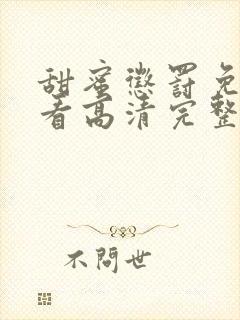 甜蜜懲罰免
看高清完整
不問世